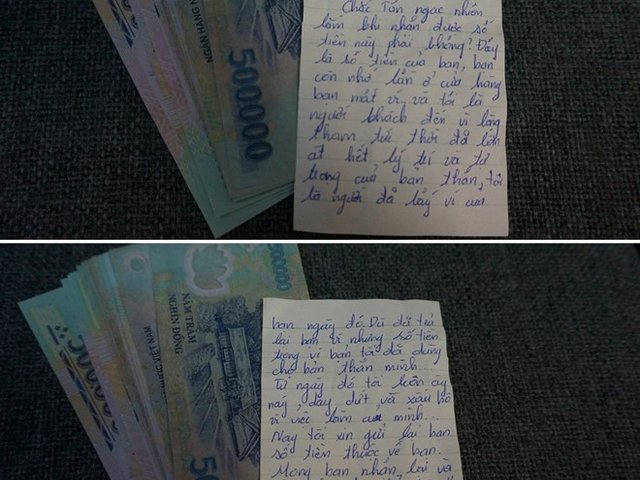 Chắc Tấn ngạc nhiên
lắm khi nhận được số
tiền này phải không? Đây
là số tiền của bạn, bạn
còn nhớ lần ở cửa hàng
bạn mất ví và tôi là
người khách đến vì lòng
tham tức thời đã lấn
át hết lý trí và tự
trọng của bản thân, tôi
là người đã lấy ví của
500000
bạn ngày đó. Dù đã trả
lại bạn ví nhưng số tiền
trong ví bạn tôi đã dùng
cho bản thân mình...
Từ ngày đó tôi luôn áy
náy, day dứt và xấu hổ
vì việc làm của mình...
Nay tôi xin gửi lại bạn
số tiền thuộc về bạn.
Mong bạn nhận lại và
NĂM TRĂM
NGHÌN ĐỒNG